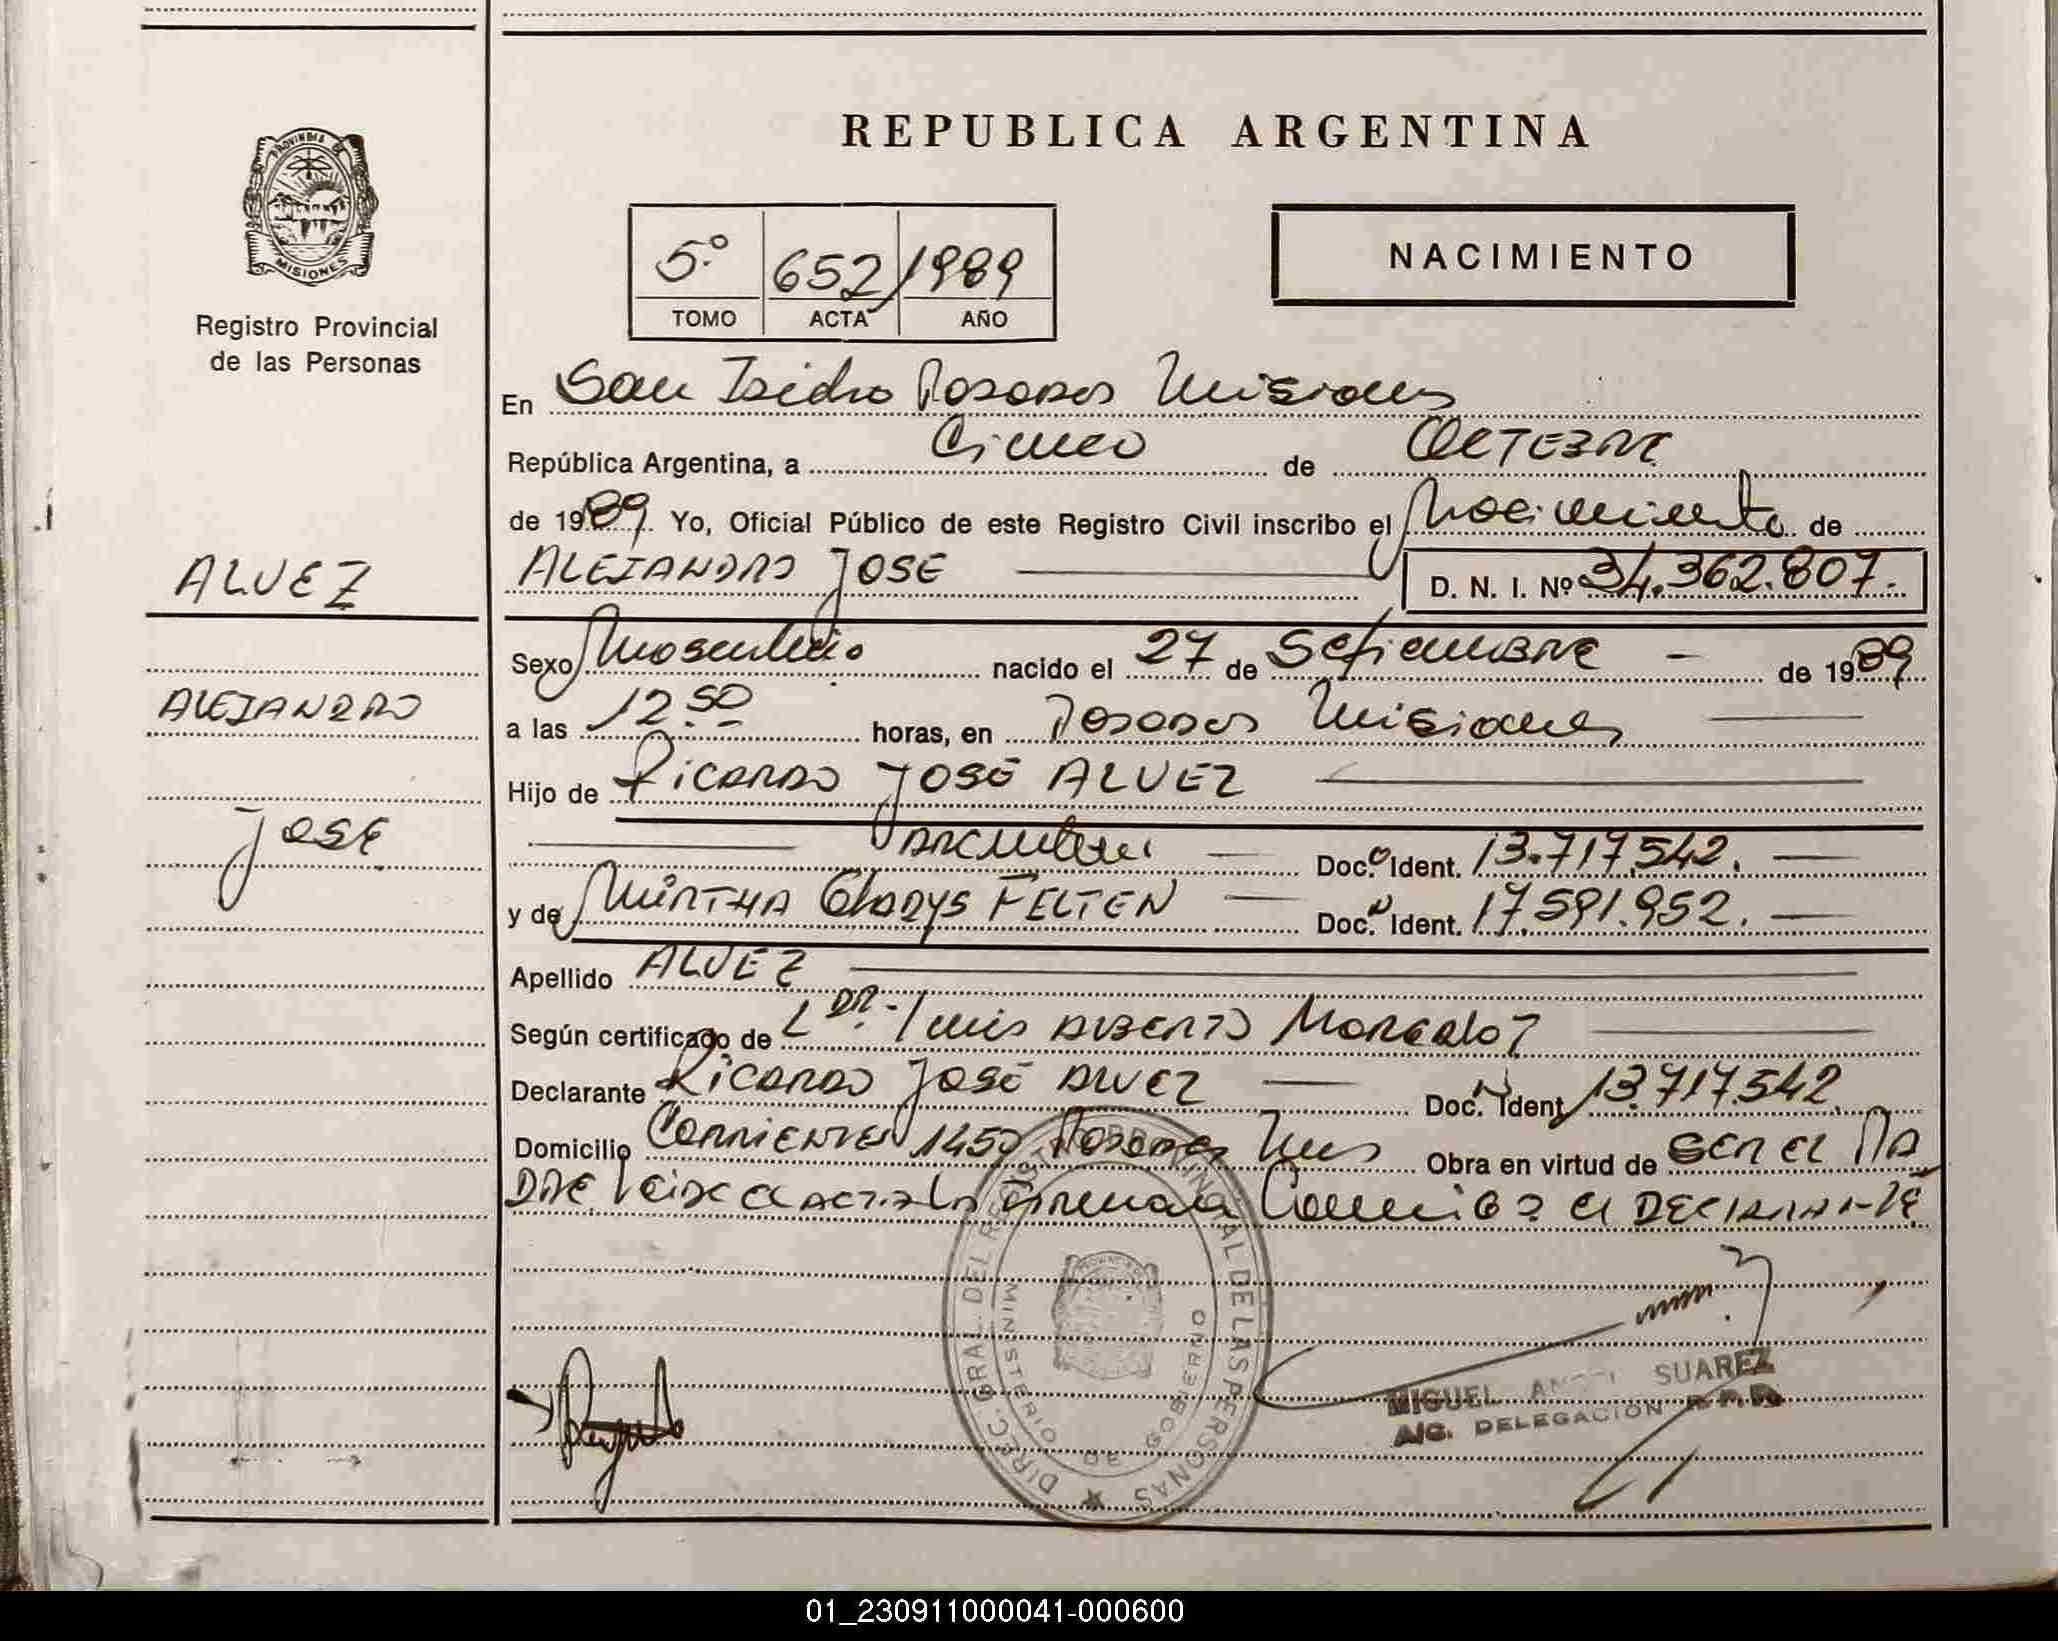 PROVINCIA DE
MISIONES
Registro Provincial
de las Personas
ALVEZ
ALEJANDRO
JOSE
REPUBLICA ARGENTINA
5º 652/1989
TOMO ACTA AÑO
NACIMIENTO
En San Isidro Posadas Misiones
República Argentina, a Cinco de OCTUBRE
de 1989. Yo, Oficial Público de este Registro Civil inscribo el Nacimiento de
ALEJANDRO JOSE D. N. I. Nº 34.362.807.
Sexo Masculino nacido el 27 de Setiembre - de 1989
a las 12 50 horas, en Posadas Misiones
Hijo de Ricardo JOSÉ ALVEZ
Argentino Doc. Ident. 13.717.542.
y de MIRTHA Gladys FELTEN Doc. Ident. 17.591.952.
Apellido ALVEZ
Según certificado de DR. Luis ALBERTO
Declarante Ricardo José ALVEZ Doc. Ident. 13.717.542.
Domicilio Corrientes 1450 Posadas Mnes Obra en virtud de ser el PA
DRE Leida el acta la firma Conmigo el DECLARANTE
DIREC. GRAL. DEL REGISTRO PROVINCIAL DE LAS PERSONAS
MINISTERIO DE GOBIERNO
MIGUEL ANGEL SUAREZ
A/C. DELEGACION R.P.P.
01_230911000041-000600